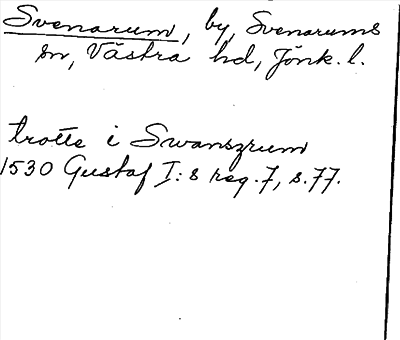 Svenarum, by, Svenarums
sn, Västra hd, Jönk. l.
trotte i Swanszrum
1530 Gustaf I:s reg. 7, s. 77.